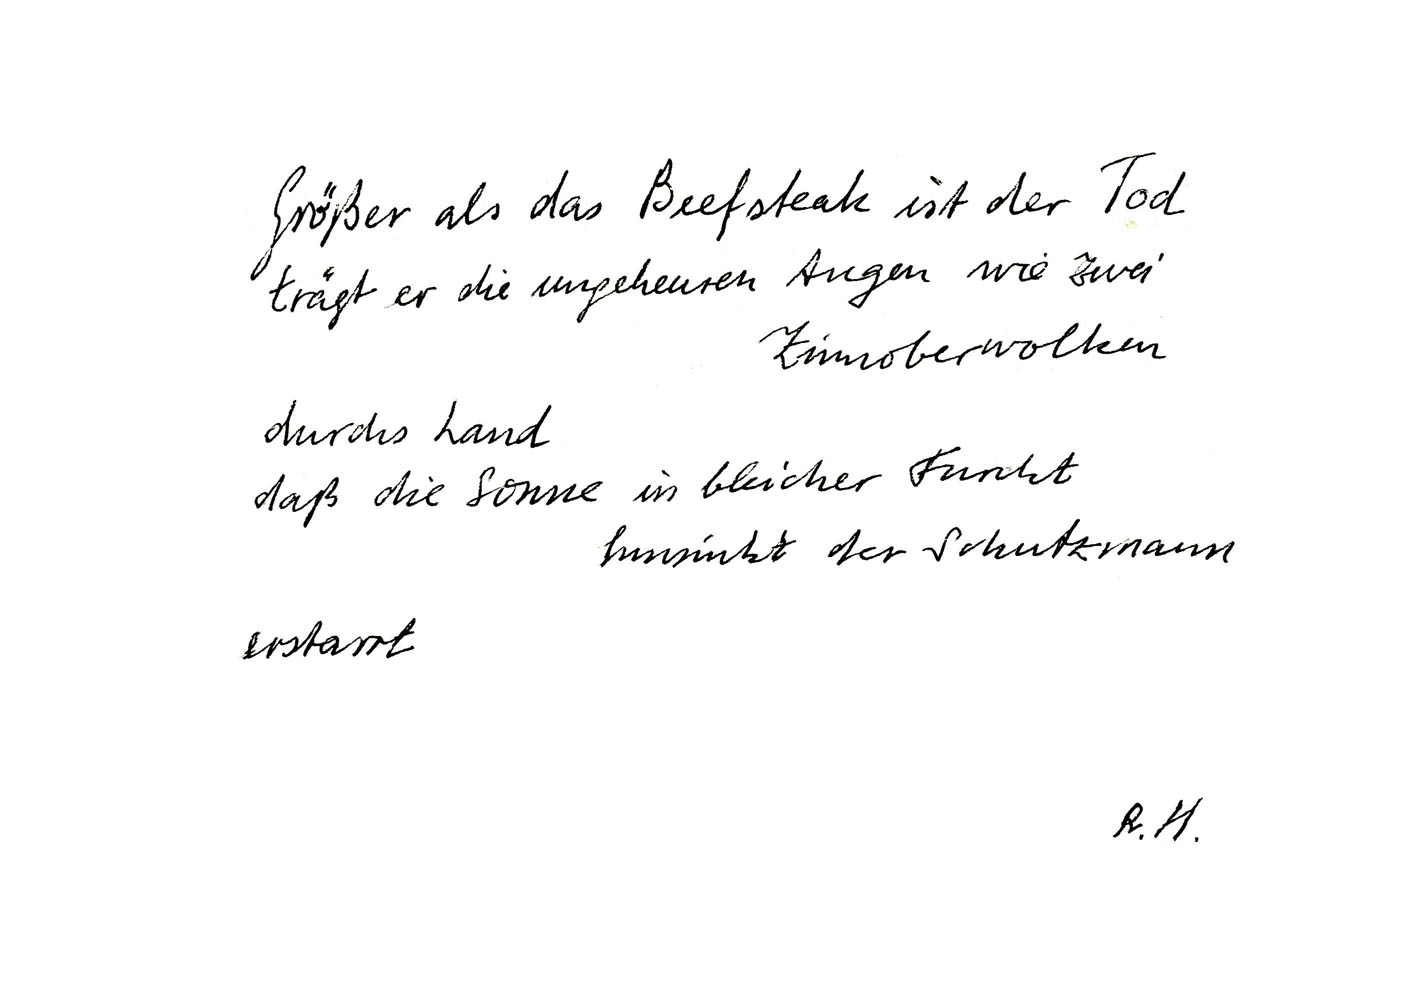 Größer als das Beefsteak ist der Tod
trägt er die ungeheuren Augen wie zwei
Zinnoberwolken
durchs Land
daß die Sonne in bleicher Furcht
hinsinkt der Schutzmann
erstarrt
R. H.